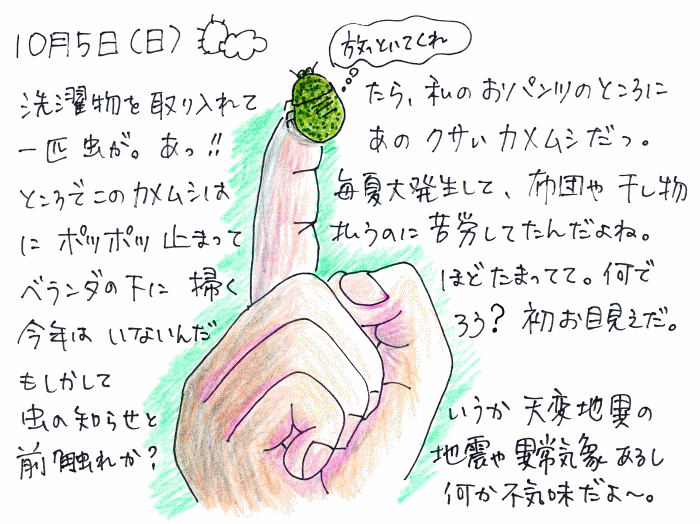 10月5日(日)
放っといてくれ
洗濯物を取り入れて たら、私のおパンツのところに
一匹 虫が。あっ!! あの クサい カメムシだっ。
ところでこのカメムシは 毎夏大発生して、布団や 干し物
に ポツポツ 止まって 払うのに 苦労してたんだよね。
ベランダの下に 掃く ほど たまってて。何で
今年は いないんだ ろう? 初お目見えだ。
もしかして
虫の知らせと いうか 天変地異の
前触れか? 地震や 異常気象 あるし
何か 不気味だよ〜。